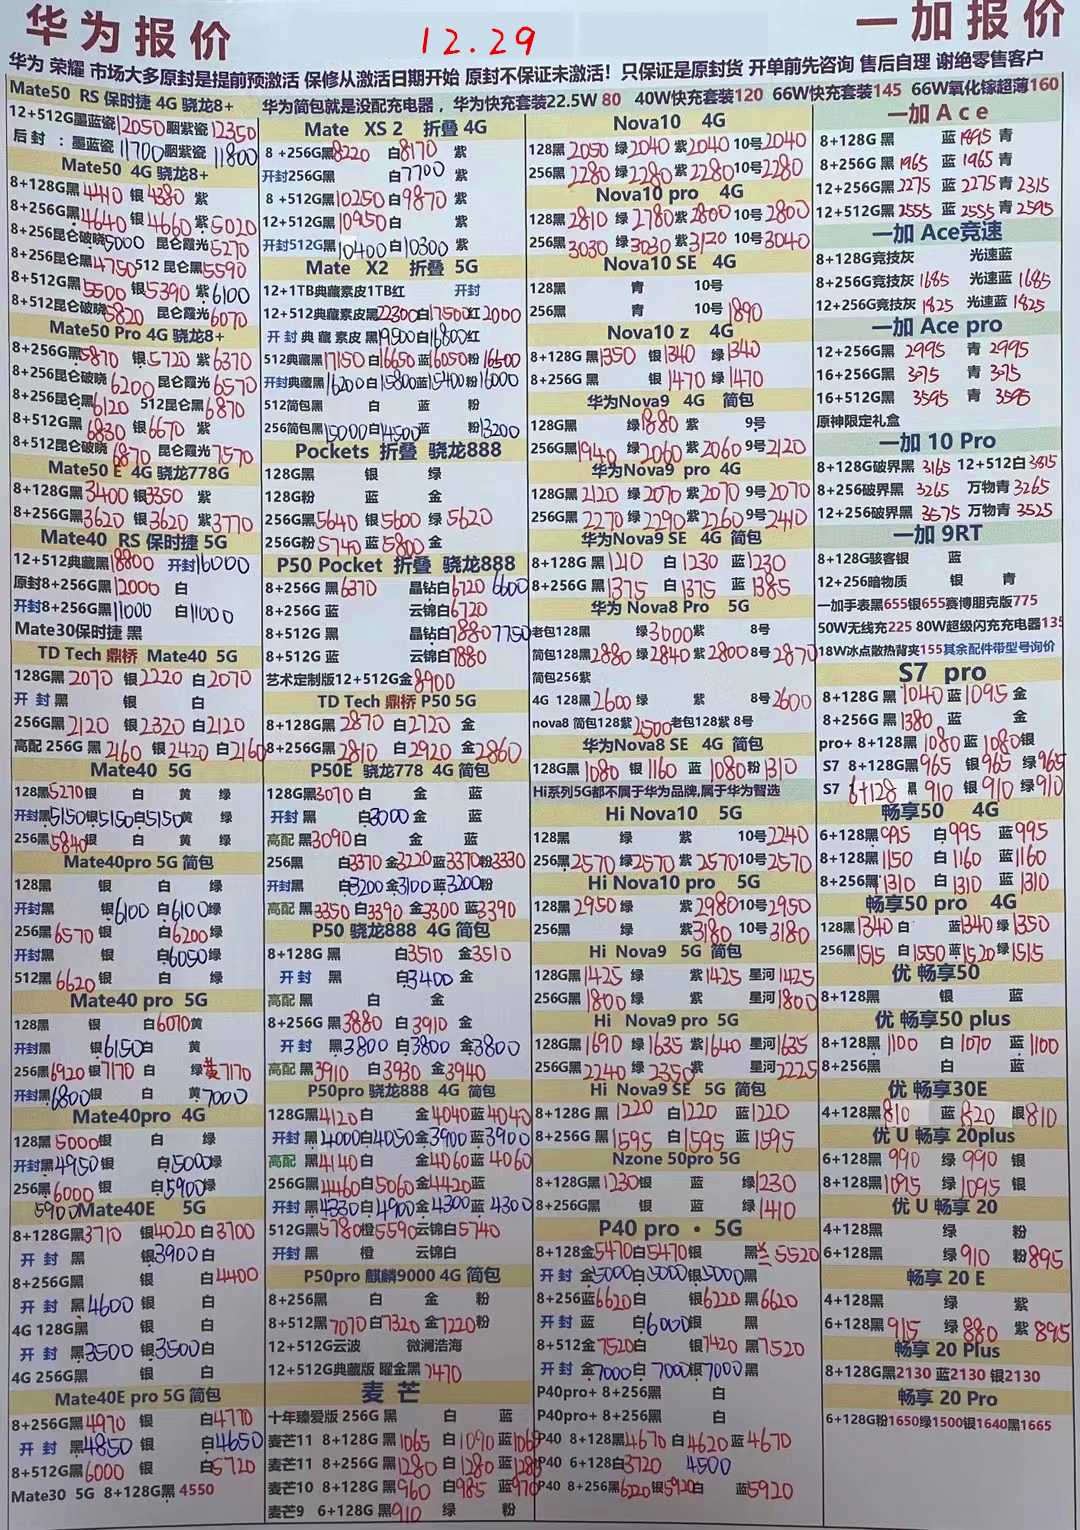 华为报价
12.29
一加报价
华为 荣耀 市场大多原封是提前预激活 保修从激活日期开始 原封不保证未激活！只保证是原封货 开单前先咨询 售后自理 谢绝零售客户
华为简包就是没配充电器，华为快充套装22.5W 80 40W快充套装120 66W快充套装145 66W氧化镓超薄160
Mate50 RS 保时捷 4G 骁龙8+
12+512G墨蓝瓷12050胭紫瓷12350
后 封 ：墨蓝瓷11700胭紫瓷11800
Mate50 4G 骁龙8+
8+128G黑4410 银4380 紫
8+256G黑4640 银4660 紫5020
8+256昆仑破晓5000 昆仑霞光5270
8+256昆仑黑4750 512昆仑黑5590
8+512G黑5500 银5390 紫6100
8+512昆仑破晓5820 昆仑霞光6070
Mate50 Pro 4G 骁龙8+
8+256G黑5870 银5720 紫6370
8+256昆仑破晓6200昆仑霞光6570
8+256昆仑黑6120 512昆仑黑6870
8+512G黑6830 银6670 紫
8+512昆仑破晓6870 昆仑霞光7570
Mate50 E 4G 骁龙778G
8+128G黑3400 银3350 紫
8+256G黑3620 银3620 紫3770
Mate40 RS 保时捷 5G
12+512典藏黑18800 开封16000
原封8+256G黑12000 白
开封8+256G黑11000 白11000
Mate30保时捷 黑
TD Tech 鼎桥 Mate40 5G
128G黑2070 银2220 白2070
开 封 黑 银 白
256G黑2120 银2320 白2120
高配 256G 黑2160 银2420 白2160
Mate40 5G
128黑5270银 白 黄 绿
开封黑5150银5150白5150黄 绿
256黑5840银 白 黄 绿
Mate40pro 5G 简包
128黑 银 白 绿
开封黑 银6100 白6100绿
256黑6570 银 白6200绿
开封黑 银 白6050绿
512黑6620银 白 绿
Mate40 pro 5G
128黑 银 白6070黄
开封黑 银6150白 黄
256黑6920银7170白 绿黄7170
开封黑6800银 白 黄7000
Mate40pro 4G
128黑5000银 白 绿
开封黑4950银 白5000绿
256黑6000 银 白5900绿
5900
Mate40E 5G
8+128G黑3710 银4020 白3700
开 封 黑 银3900 白
8+256G黑 银 白4400
开 封 黑4600 银 白
4G 128G黑 银 白
开 封 黑3500 银3500白
4G 256G黑 银 白
Mate40E pro 5G 简包
8+256G黑4970 银 白4770
开 封 黑4850 银 白4650
8+512G黑6000 银 白5720
Mate30 5G 8+128G黑4550
Mate XS 2 折叠 4G
8 +256G黑8220 白8170 紫
开封256G黑 白7700 紫
8 +512G黑10250 白9870 紫
12+512G黑10950白 紫
开封512G黑10400白10300 紫
Mate X2 折叠 5G
12+1TB典藏素皮1TB红 开封
12+512典藏素皮黑22300白17500红2000
开 封 典 藏 素 皮 黑19500白16800红
512典藏黑17150白16650蓝16050粉16500
开封典藏黑16200白15800蓝15400粉16000
512简包黑 白 蓝 粉
256简包黑15000白14500蓝 粉13200
Pockets 折叠 骁龙888
128G黑 银 绿
128G粉 蓝 金
256G黑5640 银5600 绿 5620
256G粉5740 蓝5800金
P50 Pocket 折叠 骁龙888
8+256G 黑6370 晶钻白6720 6600
8+256G 蓝 云锦白6720
8+512G 黑 晶钻白7880 7750
8+512G 蓝 云锦白7880
艺术定制版12+512G金8900
TD Tech 鼎桥 P50 5G
8+128G黑2870 白2720 金
8+256G黑2810 白2920 金2860
P50E 骁龙778 4G 简包
128G黑3070白 金 蓝
开封 黑 白3000 金 蓝
高配 黑3090白 金 蓝
256黑 白3370金3220蓝3370粉3330
开封黑 白3200金3100蓝3200粉
高配 黑3350白3390 金3300 蓝3390
P50 骁龙888 4G 简包
8+128G 黑 白3510 金3510
开 封 黑 白3400 金
高配 黑 白 金
8+256G 黑3880 白3910 金
开 封 黑3800 白3800 金3800
高配 黑3910 白3930 金3940
P50pro 骁龙888 4G 简包
128G黑4120白 金4040蓝4040
开封 黑4000白4050金3900蓝3900
高配 黑4140白 金4060蓝4060
256G黑4460白5060金4420蓝
开封 黑4330白4900金4300蓝4300
512G黑5780橙5590云锦白5740
开封 黑 橙 云锦白
P50pro 麒麟9000 4G 简包
8+256黑 白 金 粉
8+512黑7070白7320金7220粉
12+512G云波 微澜浩海
12+512G典藏版 曜金黑7470
麦 芒
十年臻爱版 256G 黑 白 蓝
麦芒11 8+128G 黑1065 白1090 蓝1065
麦芒11 8+256G 黑1280 白1280 蓝1280
麦芒10 8+128G 黑960 白985 蓝970
麦芒9 6+128G 黑910 绿 粉
Nova10 4G
128黑2050 绿2040 紫2040 10号2040
256黑2280 绿2280 紫2280 10号2280
Nova10 pro 4G
128黑2810 绿2780紫2800 10号2800
256黑3030 绿3030 紫3120 10号3040
Nova10 SE 4G
128黑 青 10号
256黑 青 10号1890
Nova10 z 4G
8+128G 黑1350 银1340 绿1340
8+256G 黑 银1470 绿1470
华为Nova9 4G 简包
128G黑 绿1880 紫 9号
256G黑1940 绿2060 紫2060 9号2120
华为Nova9 pro 4G
128G黑2120 绿2070紫2070 9号2070
256G黑2270 绿2290紫2260 9号2410
华为Nova9 SE 4G 简包
8+128G 黑1210 白1230 蓝1230
8+256G 黑1375 白1375 蓝1385
华为 Nova8 Pro 5G
老包128黑 绿3000紫 8号
简包128黑2880 绿2840 紫2800 8号2870
简包256紫
4G 128黑2600 绿 紫 8号2600
nova8 简包128紫2500老包128紫 8号
华为Nova8 SE 4G 简包
128G黑1080 银1160 蓝1080粉1310
Hi系列5G都不属于华为品牌,属于华为智选
Hi Nova10 5G
128黑 绿 紫 10号2240
256黑2570绿2570紫2570 10号2570
Hi Nova10 pro 5G
128黑2950绿 紫2980 10号2950
256黑 绿 紫3180 10号3180
Hi Nova9 5G 简包
128G黑1425 绿 紫1425 星河1425
256G黑1800 绿 紫 星河1800
Hi Nova9 pro 5G
128G黑1690 绿1635 紫1640 星河1635
256G黑2240 绿2350 紫 星河2225
Hi Nova9 SE 5G 简包
8+128G 黑1220 白1220 蓝1220
8+256G 黑1595 白1595 蓝1595
Nzone 50pro 5G
8+128G黑1230银 蓝 绿1230
8+256G黑 银 蓝 绿1410
P40 pro · 5G
8+128金5470白5470银 黑 5520
开 封 金5000白5000银5000黑
8+256蓝6620白 银6220 黑6620
开 封 蓝 白6000银 黑
8+512金7520白 银7420 黑7520
开 封 金7000白7000银7000黑
P40pro+ 8+256黑 白
P40pro+ 8+256黑 白
P40 8+128黑4670 白4620 蓝4670
P40 6+128白3720 4500
P40 8+256黑6220银5920白 蓝5920
一加 A c e
8+128G 黑 蓝1895 青
8+256G 黑1965 蓝1965 青
12+256G黑2275 蓝2275 青2315
12+512G黑2555 蓝2555 青2595
一加 Ace竞速
8+128G竞技灰 光速蓝
8+256G竞技灰1685 光速蓝1685
12+256G竞技灰1825 光速蓝1825
一加 Ace pro
12+256G黑 2995 青 2995
16+256G黑 3275 青 3275
16+512G黑 3595 青 3595
原神限定礼盒
一加 10 Pro
8+128G破界黑 3165 12+512白3815
8+256破界黑 3265 万物青3265
12+256破界黑 3575 万物青3525
一加 9RT
8+128G骇客银 蓝
12+256暗物质 银 青
一加手表黑655银655赛博朋克版775
50W无线充225 80W超级闪充充电器135
18W冰点散热背夹155其余配件带型号询价
S7 pro
8+128G 黑1040 蓝1095 金
8+256G 黑1380 蓝 金
pro+ 8+128黑1080蓝1080银
S7 8+128G黑965 银965 绿965
S7 6+128 黑910 银910 绿910
畅享50 4G
6+128黑995 白995 蓝995
8+128黑1150 白1160 蓝1160
8+256黑1310 白1310 蓝1310
畅享50 pro 4G
128黑1340白 蓝1340绿1350
256黑1515 白1550 蓝1520绿1515
优 畅享50
8+128黑 银 蓝
优 畅享50 plus
8+128黑1100 白1070 蓝1100
8+256黑 白 蓝
优 畅享30E
4+128黑810 蓝820 银810
优 U 畅享 20plus
6+128黑 990 绿990 银
8+128黑1095 绿1095 银
优 U 畅享 20
4+128黑 绿 粉
6+128黑 绿910 粉895
畅享 20 E
4+128黑 绿 紫
6+128黑915 绿880 紫895
畅享 20 Plus
8+128G黑2130 蓝2130 银2130
畅享 20 Pro
6+128G粉1650绿1500银1640黑1665